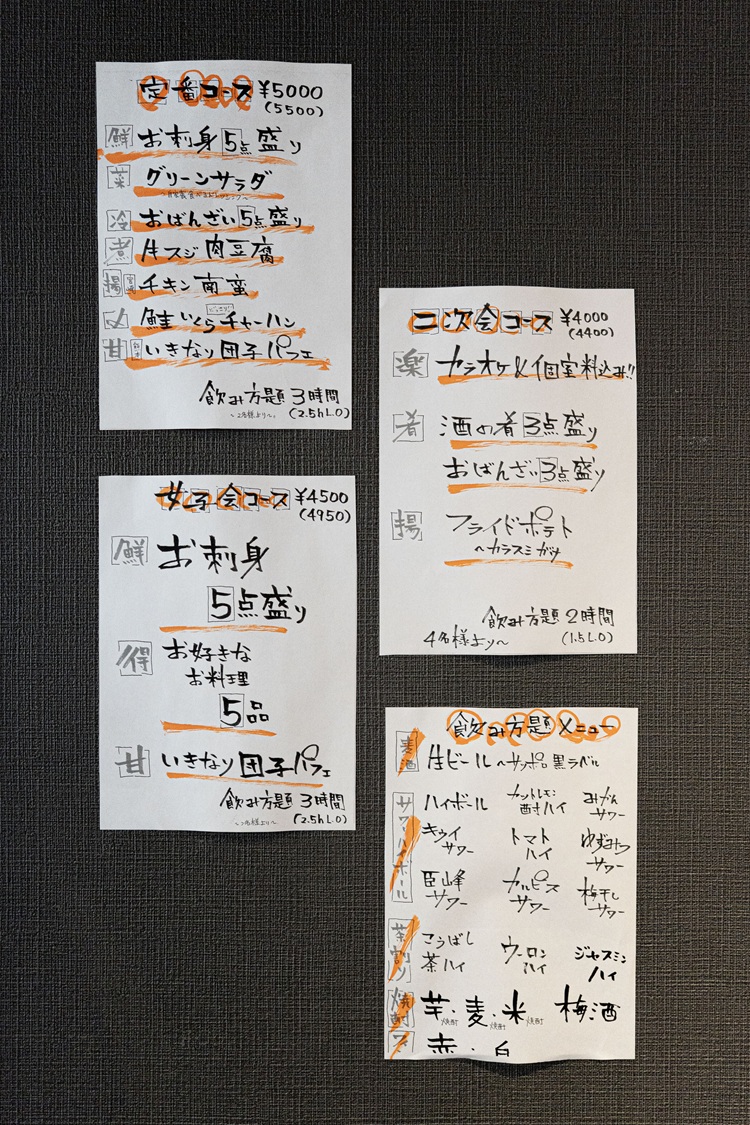 定番コース ¥5000
(5500)
鮮 お刺身5点盛り
菜 グリーンサラダ
冷 おばんざい5点盛り
煮 牛スジ肉豆腐
揚 宮崎 チキン南蛮
〆 鮭いくらチャーハン
甘 いきなり団子パフェ
飲み方題 3時間
〜2名様より〜 (2.5h L.O)
二次会コース ¥4000
(4400)
楽 カラオケ&個室料込み!!
肴 酒の肴3点盛り
おばんざい3点盛り
揚 フライドポテト
〜カラスミがけ
飲み方題 2時間
4名様より〜 (1.5 L.O)
女子会コース ¥4500
(4950)
鮮 お刺身
5点盛り
得 お好きな
お料理
5品
甘 いきなり団子パフェ
飲み方題 3時間
〜2名様より〜 (2.5h L.O)
飲み方題メニュー
麦酒 生ビール 〜サッポロ黒ラベル
サワーハイボール
ハイボール カットレモン酎ハイ みかんサワー
キウイサワー トマトハイ ゆずみつサワー
巨峰サワー カルピスサワー 梅干しサワー
茶割り
こうばし茶ハイ ウーロンハイ ジャスミンハイ
焼酎 芋・麦・米 梅酒
焼酎 焼酎 焼酎
赤・白